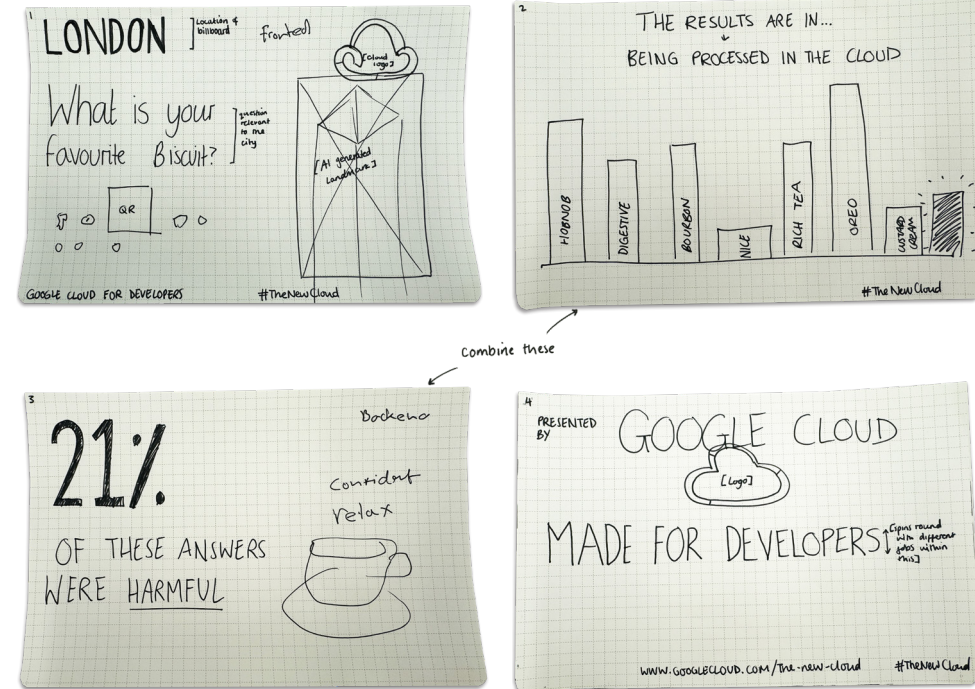 1
LONDON
]Location &
billboard
fronted
[Cloud
logo]
What is your
favourite Biscuit?
question
relevant
to the
city
[AI generated
Landmark]
QR
GOOGLE CLOUD FOR DEVELOPERS
#TheNewCloud
2
THE RESULTS ARE IN...
BEING PROCESSED IN THE CLOUD
HOBNOB
DIGESTIVE
BOURBON
NICE
RICH TEA
OREO
CUSTARD
CREAM
#TheNewCloud
Combine these
3
21%
Backend
relax
OF THESE ANSWERS
WERE HARMFUL
4
PRESENTED
BY
GOOGLE CLOUD
[Logo]
MADE FOR DEVELOPERS
[spins round
with different
jobs within
this]
WWW.GOOGLECLOUD.COM/The-new-cloud
#TheNewCloud